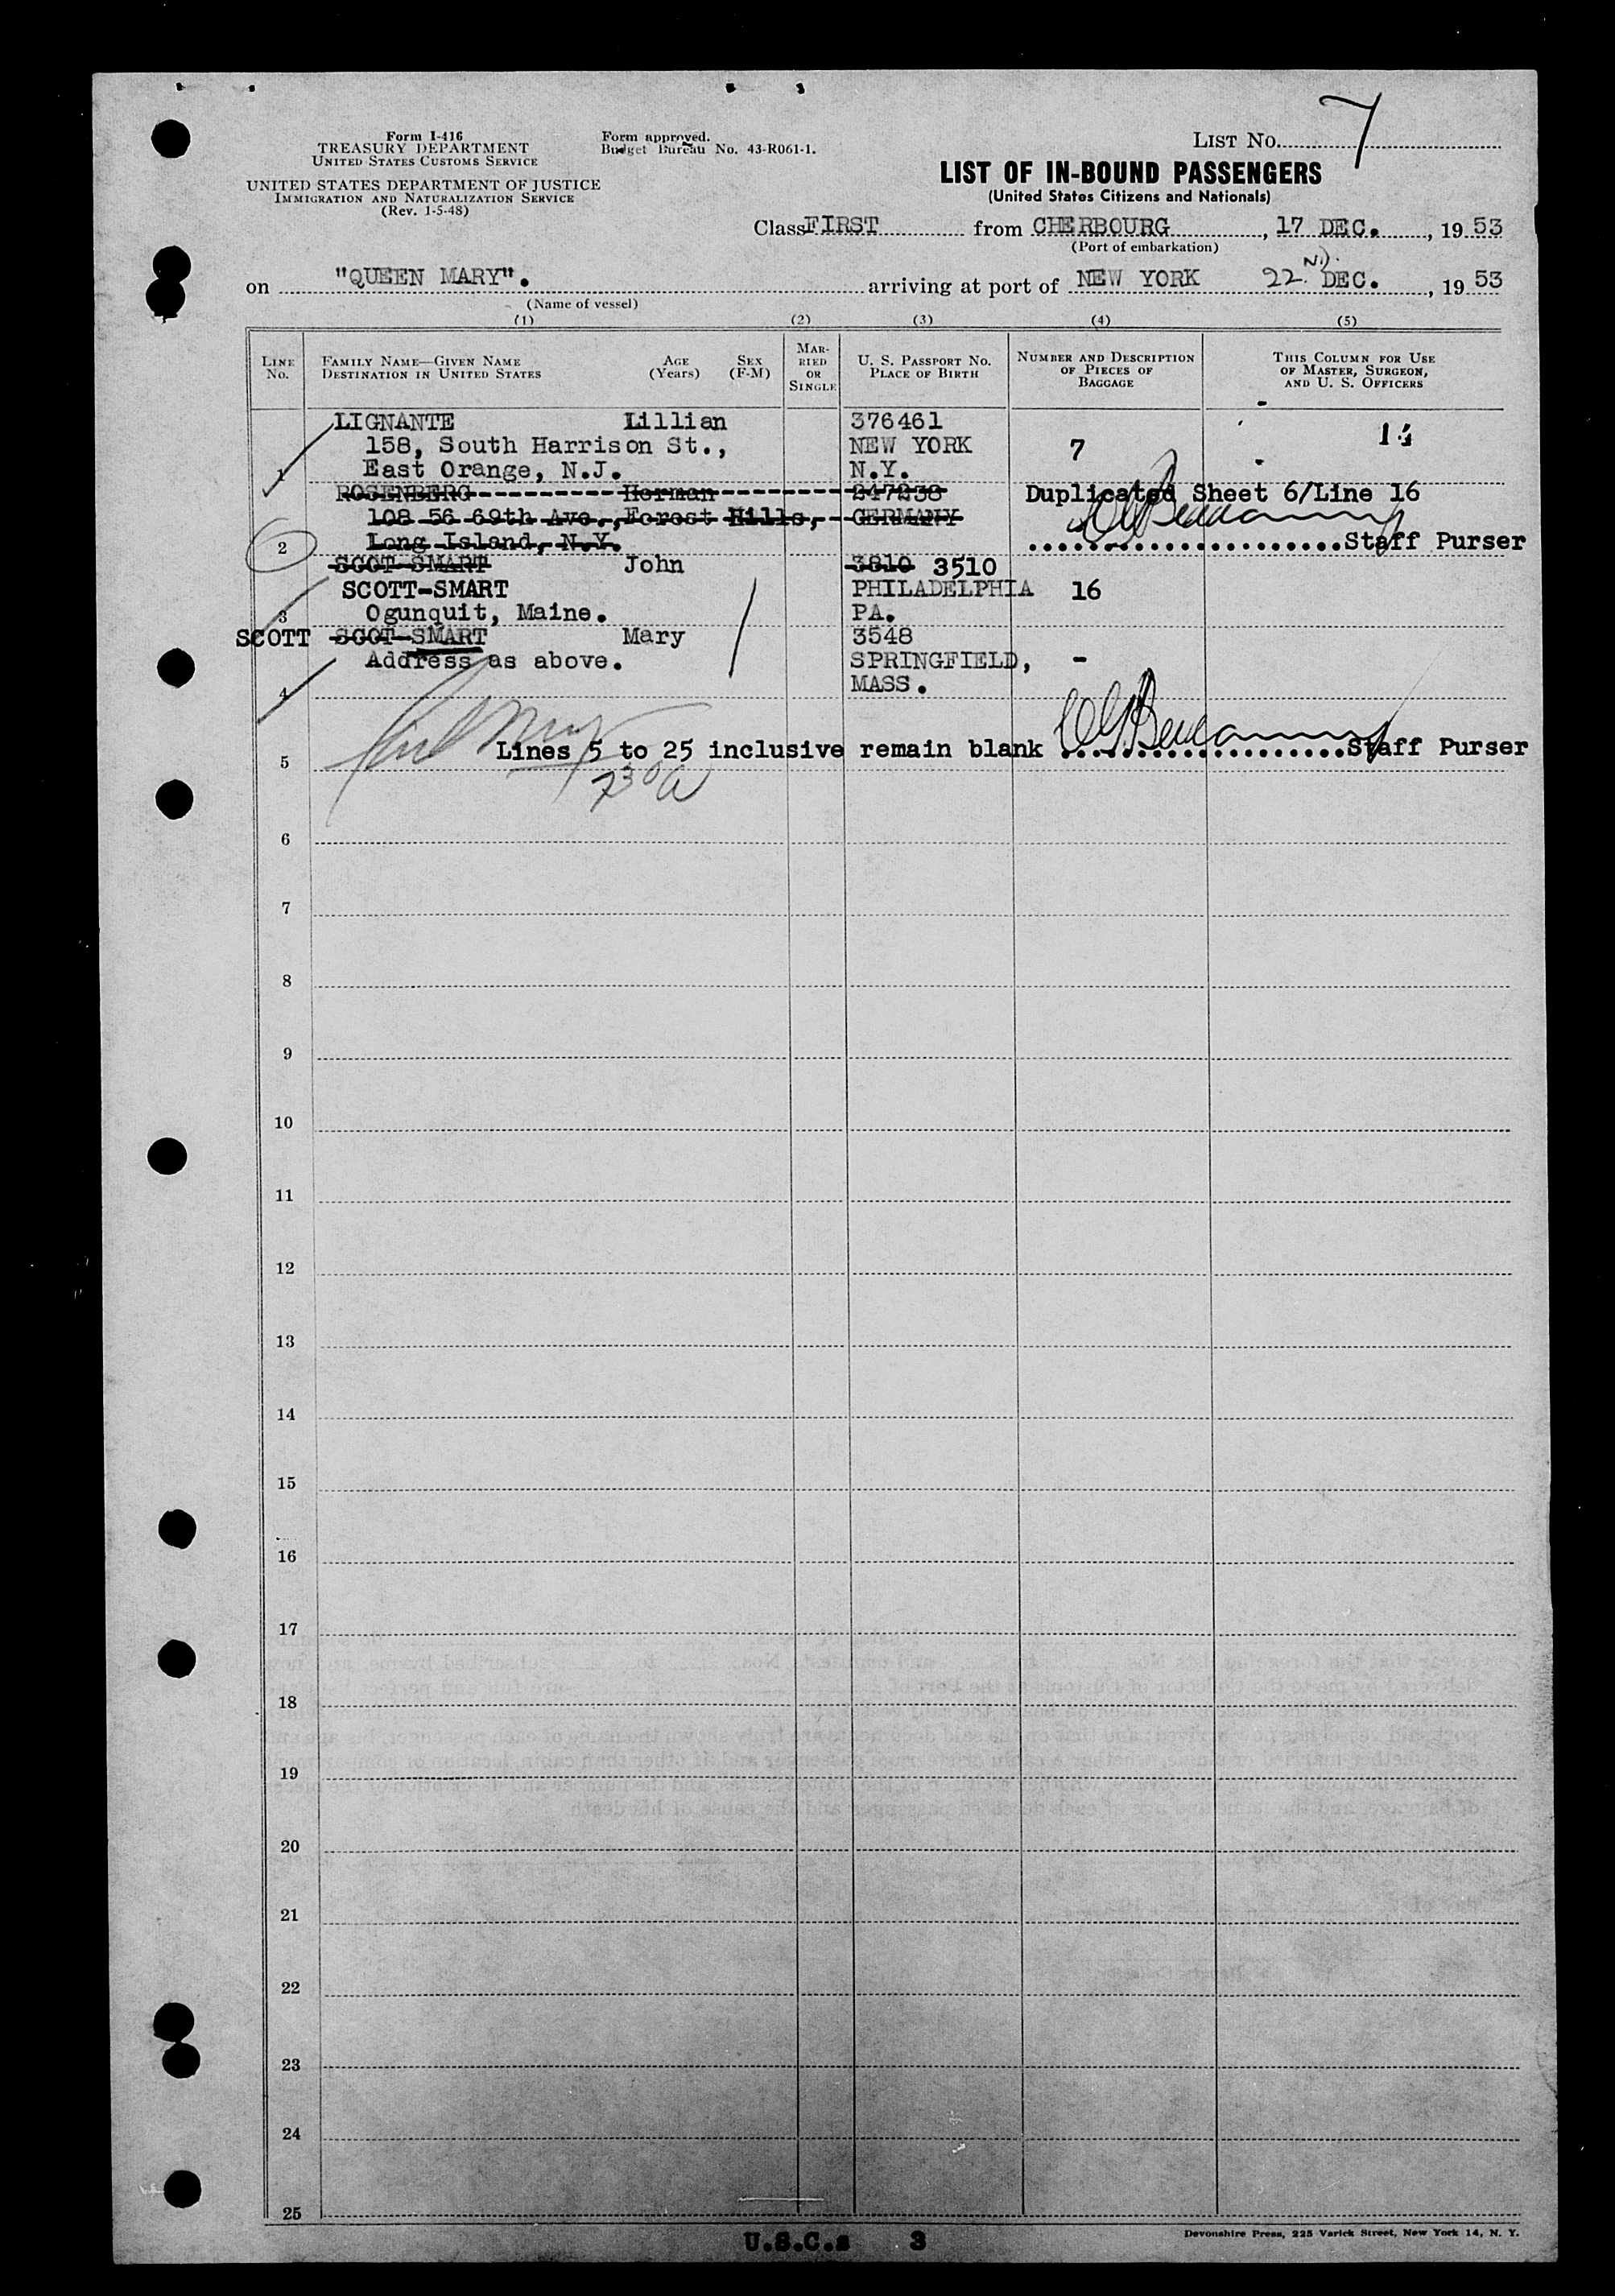 Form I-416
TREASURY DEPARTMENT
UNITED STATES CUSTOMS SERVICE
UNITED STATES DEPARTMENT OF JUSTICE
IMMIGRATION AND NATURALIZATION SERVICE
(Rev. 1-5-48)
Form approved.
Budget Bureau No. 43-R061-1.
LIST No. 7
LIST OF IN-BOUND PASSENGERS
(United States Citizens and Nationals)
Class FIRST from CHERBOURG, 17 DEC., 1953
(Port of embarkation)
on "QUEEN MARY". arriving at port of NEW YORK 22ND. DEC., 1953
(Name of vessel)
(1) (2) (3) (4) (5)
LINE No.
FAMILY NAME—GIVEN NAME
DESTINATION IN UNITED STATES
AGE (Years)
SEX (F-M)
MARRIED OR SINGLE
U. S. PASSPORT No.
PLACE OF BIRTH
NUMBER AND DESCRIPTION OF PIECES OF BAGGAGE
THIS COLUMN FOR USE OF MASTER, SURGEON, AND U. S. OFFICERS
LIGNANTE Lillian 376461
158, South Harrison St., NEW YORK 7
1 East Orange, N.J. N.Y.
ROSENBERG Herman 247238 Duplicated Sheet 6/Line 16
108 56 69th Ave., Forest Hills, GERMANY
2 Long Island, N.Y. Staff Purser
SCOT-SMART John 3810 3510
SCOTT-SMART PHILADELPHIA 16
3 Ogunquit, Maine. PA.
SCOTT SCOT-SMART Mary 3548
Address as above. SPRINGFIELD, -
4 MASS.
5 Lines 5 to 25 inclusive remain blank Staff Purser
730A
6
7
8
9
10
11
12
13
14
15
16
17
18
19
20
21
22
23
24
25
U.S.C.s 3
Devonshire Press, 225 Varick Street, New York 14, N. Y.